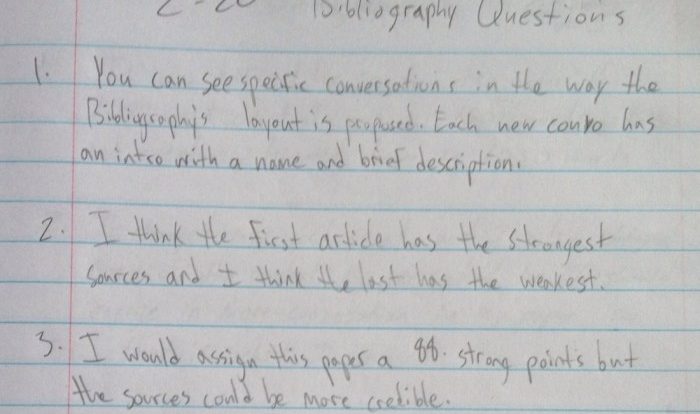 2-20 Bibliography Questions
1. You can see specific conversations in the way the
Bibliography's layout is proposed. Each new convo has
an intro with a name and brief description.
2. I think the first article has the strongest
sources and I think the last has the weakest.
3. I would assign this paper a 88. strong points but
the sources could be more credible.